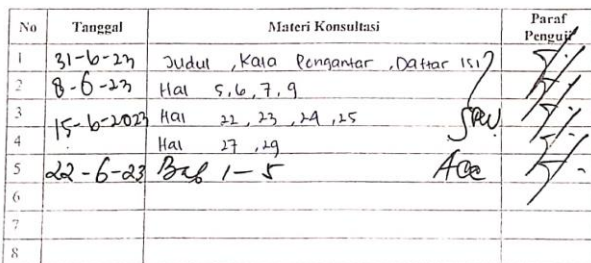 No Tanggal Materi Konsultasi Paraf Penguji
1 31-6-23 Judul , Kata Pengantar , Daftar isi
2 8-6-23 Hal 5, 6, 7, 9
3 15-6-2023 Hal 22, 23, 24, 25
4 Hal 27, 29
5 22-6-23 Bab 1-5 Acc
6
7
8